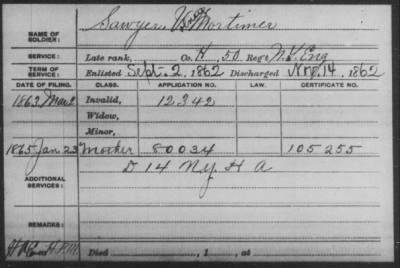 Sawyer, Mortimer
NAME OF SOLDIER:
SERVICE: Late rank, Co. H, 50 Reg't N.Y. Eng
TERM OF SERVICE: Enlisted Sept. 2, 1862 Discharged Nov. 14, 1862
DATE OF FILING. CLASS. APPLICATION NO. LAW. CERTIFICATE NO.
1863, Mar 2 Invalid, 12342
Widow,
Minor,
1865 Jan 23 Mother 80034 105255
D 14 N.Y. H A
ADDITIONAL SERVICES:
REMARKS:
Died , 1 , at